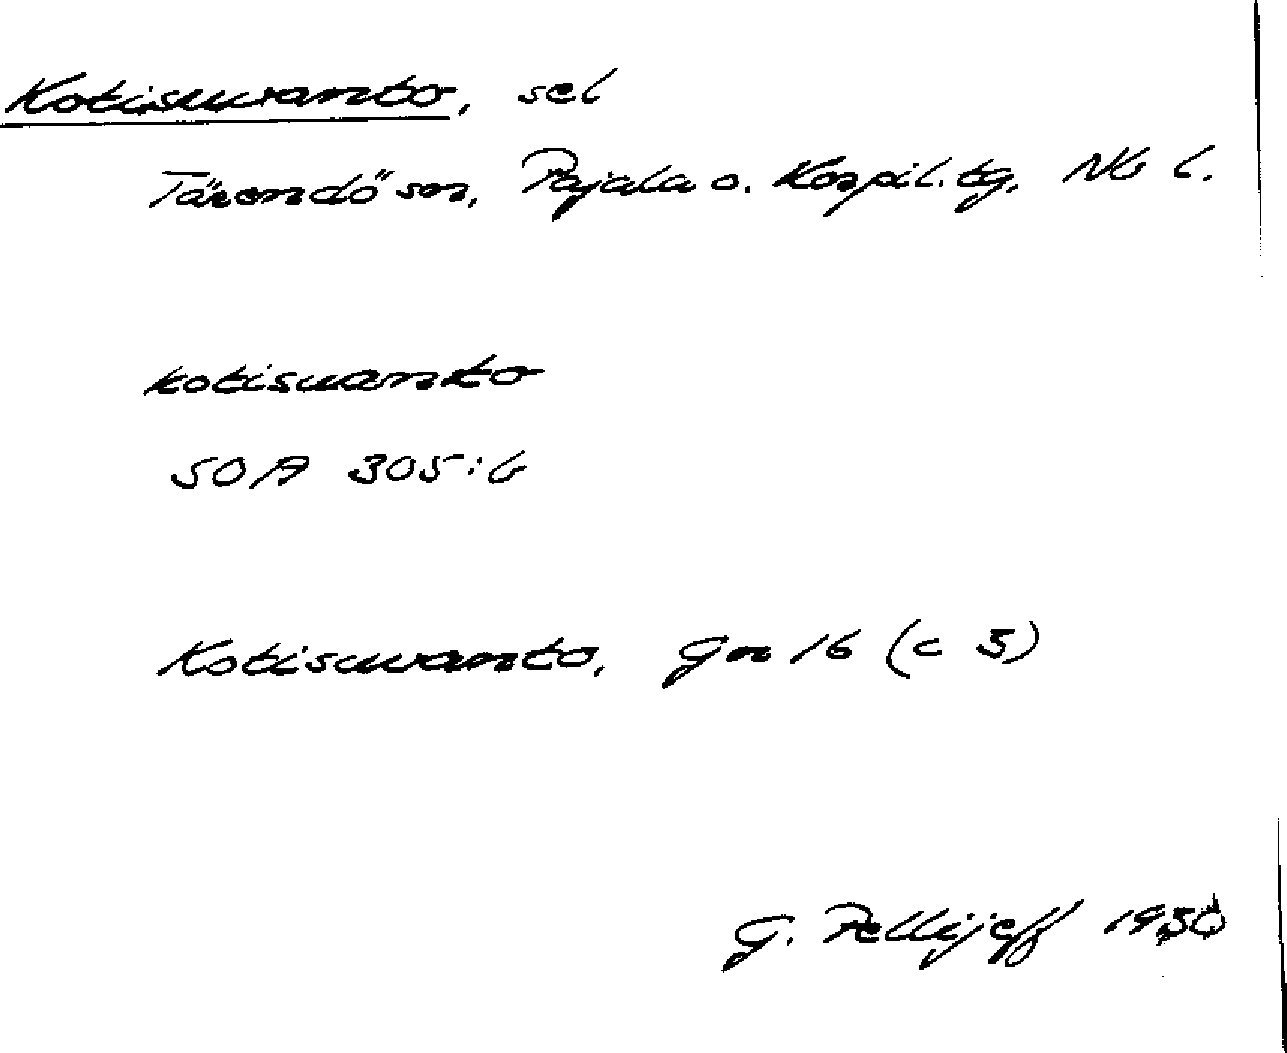 Kotisuvanto, sel
Tärendö sn, Pajala o. Korpil. tg, Nb l.
kotisuanto
SOA 305:6
Kotisuvanto, Gn 16 (c 3)
G. Pellijeff 1950